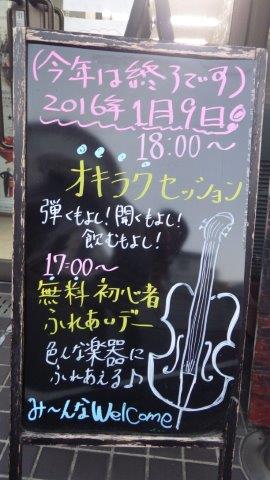 (今年は終了です)
2016年1月9日
18:00〜
オキラクセッション
弾くもよし!聞くもよし!
飲むもよし!
17:00〜
無料初心者
ふれあいデー
色んな楽器に
ふれあえる♪
み〜んなWelcome